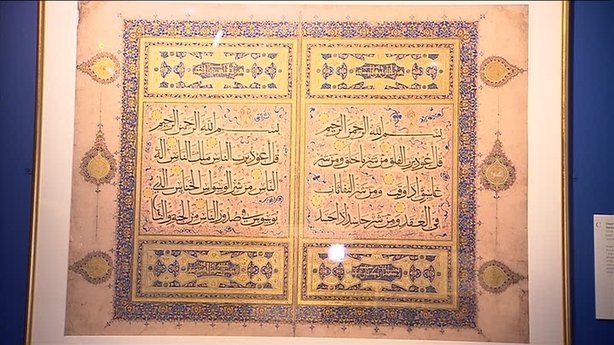 بسم الله الرحمن الرحيم
قل اعوذ برب الفلق من شر ما خلق ومن شر
غاسق اذا وقب ومن شر النفاثات
في العقد ومن شر حاسد اذا حسد
بسم الله الرحمن الرحيم
قل اعوذ برب الناس ملك الناس اله
الناس من شر الوسواس الخناس الذي
يوسوس في صدور الناس من الجنة والناس